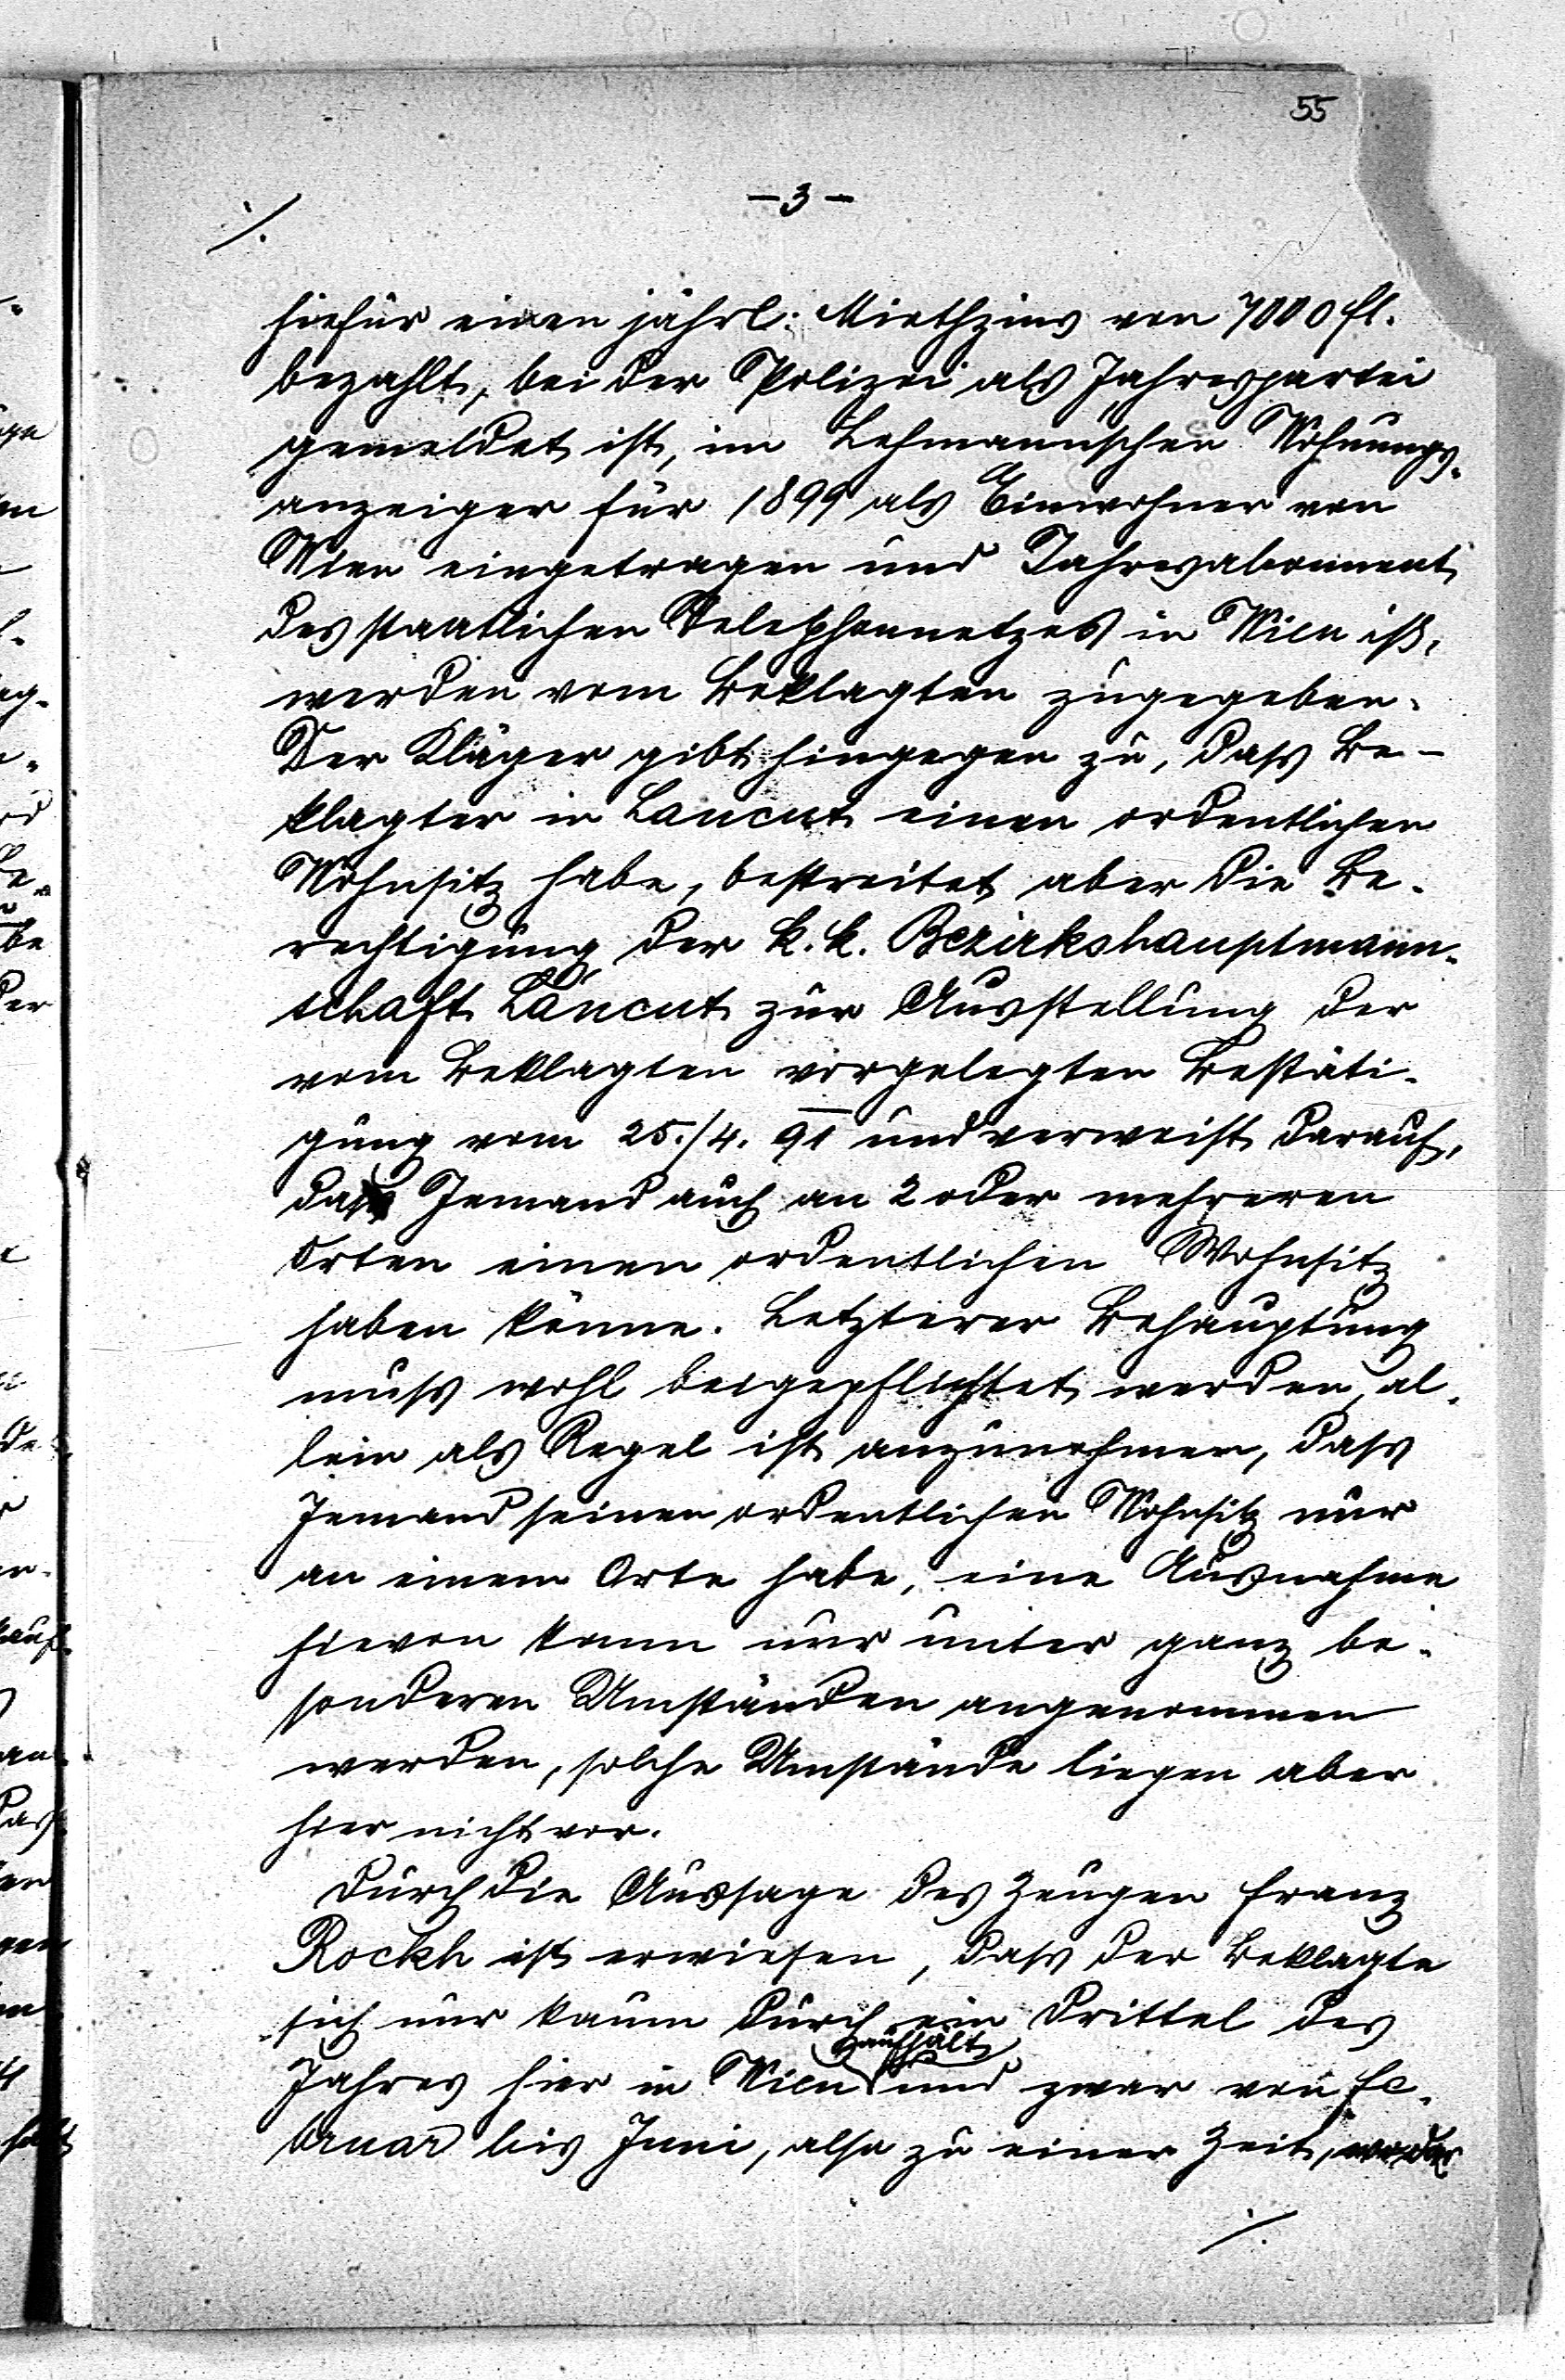 55
- 3 -
./.
hiefür einen jährl. Miethzins von 7000 fl.
bezahlt, bei der Polizei als Jahrespartei
gemeldet ist, im Lehmann'schen Wohnungs-
anzeiger für 1899 als Einwohner von
Wien eingetragen und Jahresabonnent
des staatlichen Telephonnetzes in Wien ist,
werden vom Beklagten zugegeben.
Der Kläger gibt hingegen zu, dass Be-
klagter in Lancut einen ordentlichen
Wohnsitz habe, bestreitet aber die Be-
rechtigung der k. k. Bezirkshauptmann-
schaft Láncut zur Ausstellung der
vom Beklagten vorgelegten Bestäti-
gung vom 25./4. 91 und verweist darauf,
dass Jemand auch an 2 oder mehreren
Orten einen ordentlichen Wohnsitz
haben könne. Letzterer Behauptung
muss wohl beigepflichtet werden, al-
lein als Regel ist anzunehmen, dass
Jemand seinen ordentlichen Wohnsitz nur
an einem Orte habe, eine Ausnahme
hievon kann nur unter ganz be-
sonderen Umständen angenommen
werden, solche Umstände liegen aber
hier nicht vor.
Durch die Aussage des Zeugen Franz
Rockh ist erwiesen, dass der Beklagte
sich nur kaum durch ein Drittel des
aufhält
Jahres hier in Wien und zwar von Fe-
bruar bis Juni, also zu einer Zeit, wo der
./.